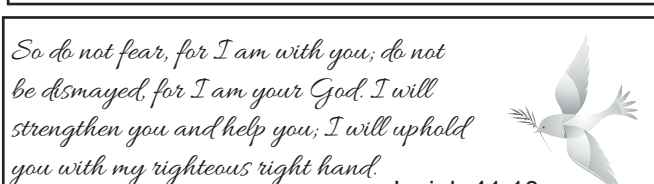 So do not fear, for I am with you; do not
be dismayed, for I am your God. I will
strengthen you and help you; I will uphold
you with my righteous right hand.
Isaiah 41:10